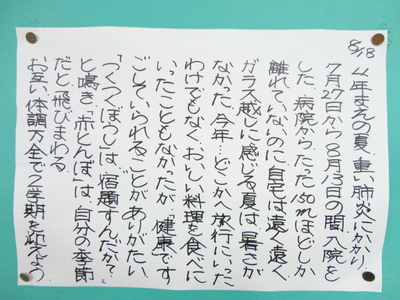 8/18
4年まえの夏、重い肺炎にかかり、
7月27日から8月13日の間、入院を
した。病院から、たった150mほどしか
離れていないのに、自宅は遠く遠く、
ガラス越しに感じる夏は、暑さが
なかった。今年…どこかへ旅行にいった
わけでもなく、おいしい料理を食べに
いったこともなかったが、「健康」ですご
ごしていられることがありがたい。
「つくつくぼうし」は「宿題すんだか?」
と鳴き、「赤とんぼ」は、自分の季節
だと飛びまわる。
お互い体調万全で2学期を迎えよう。